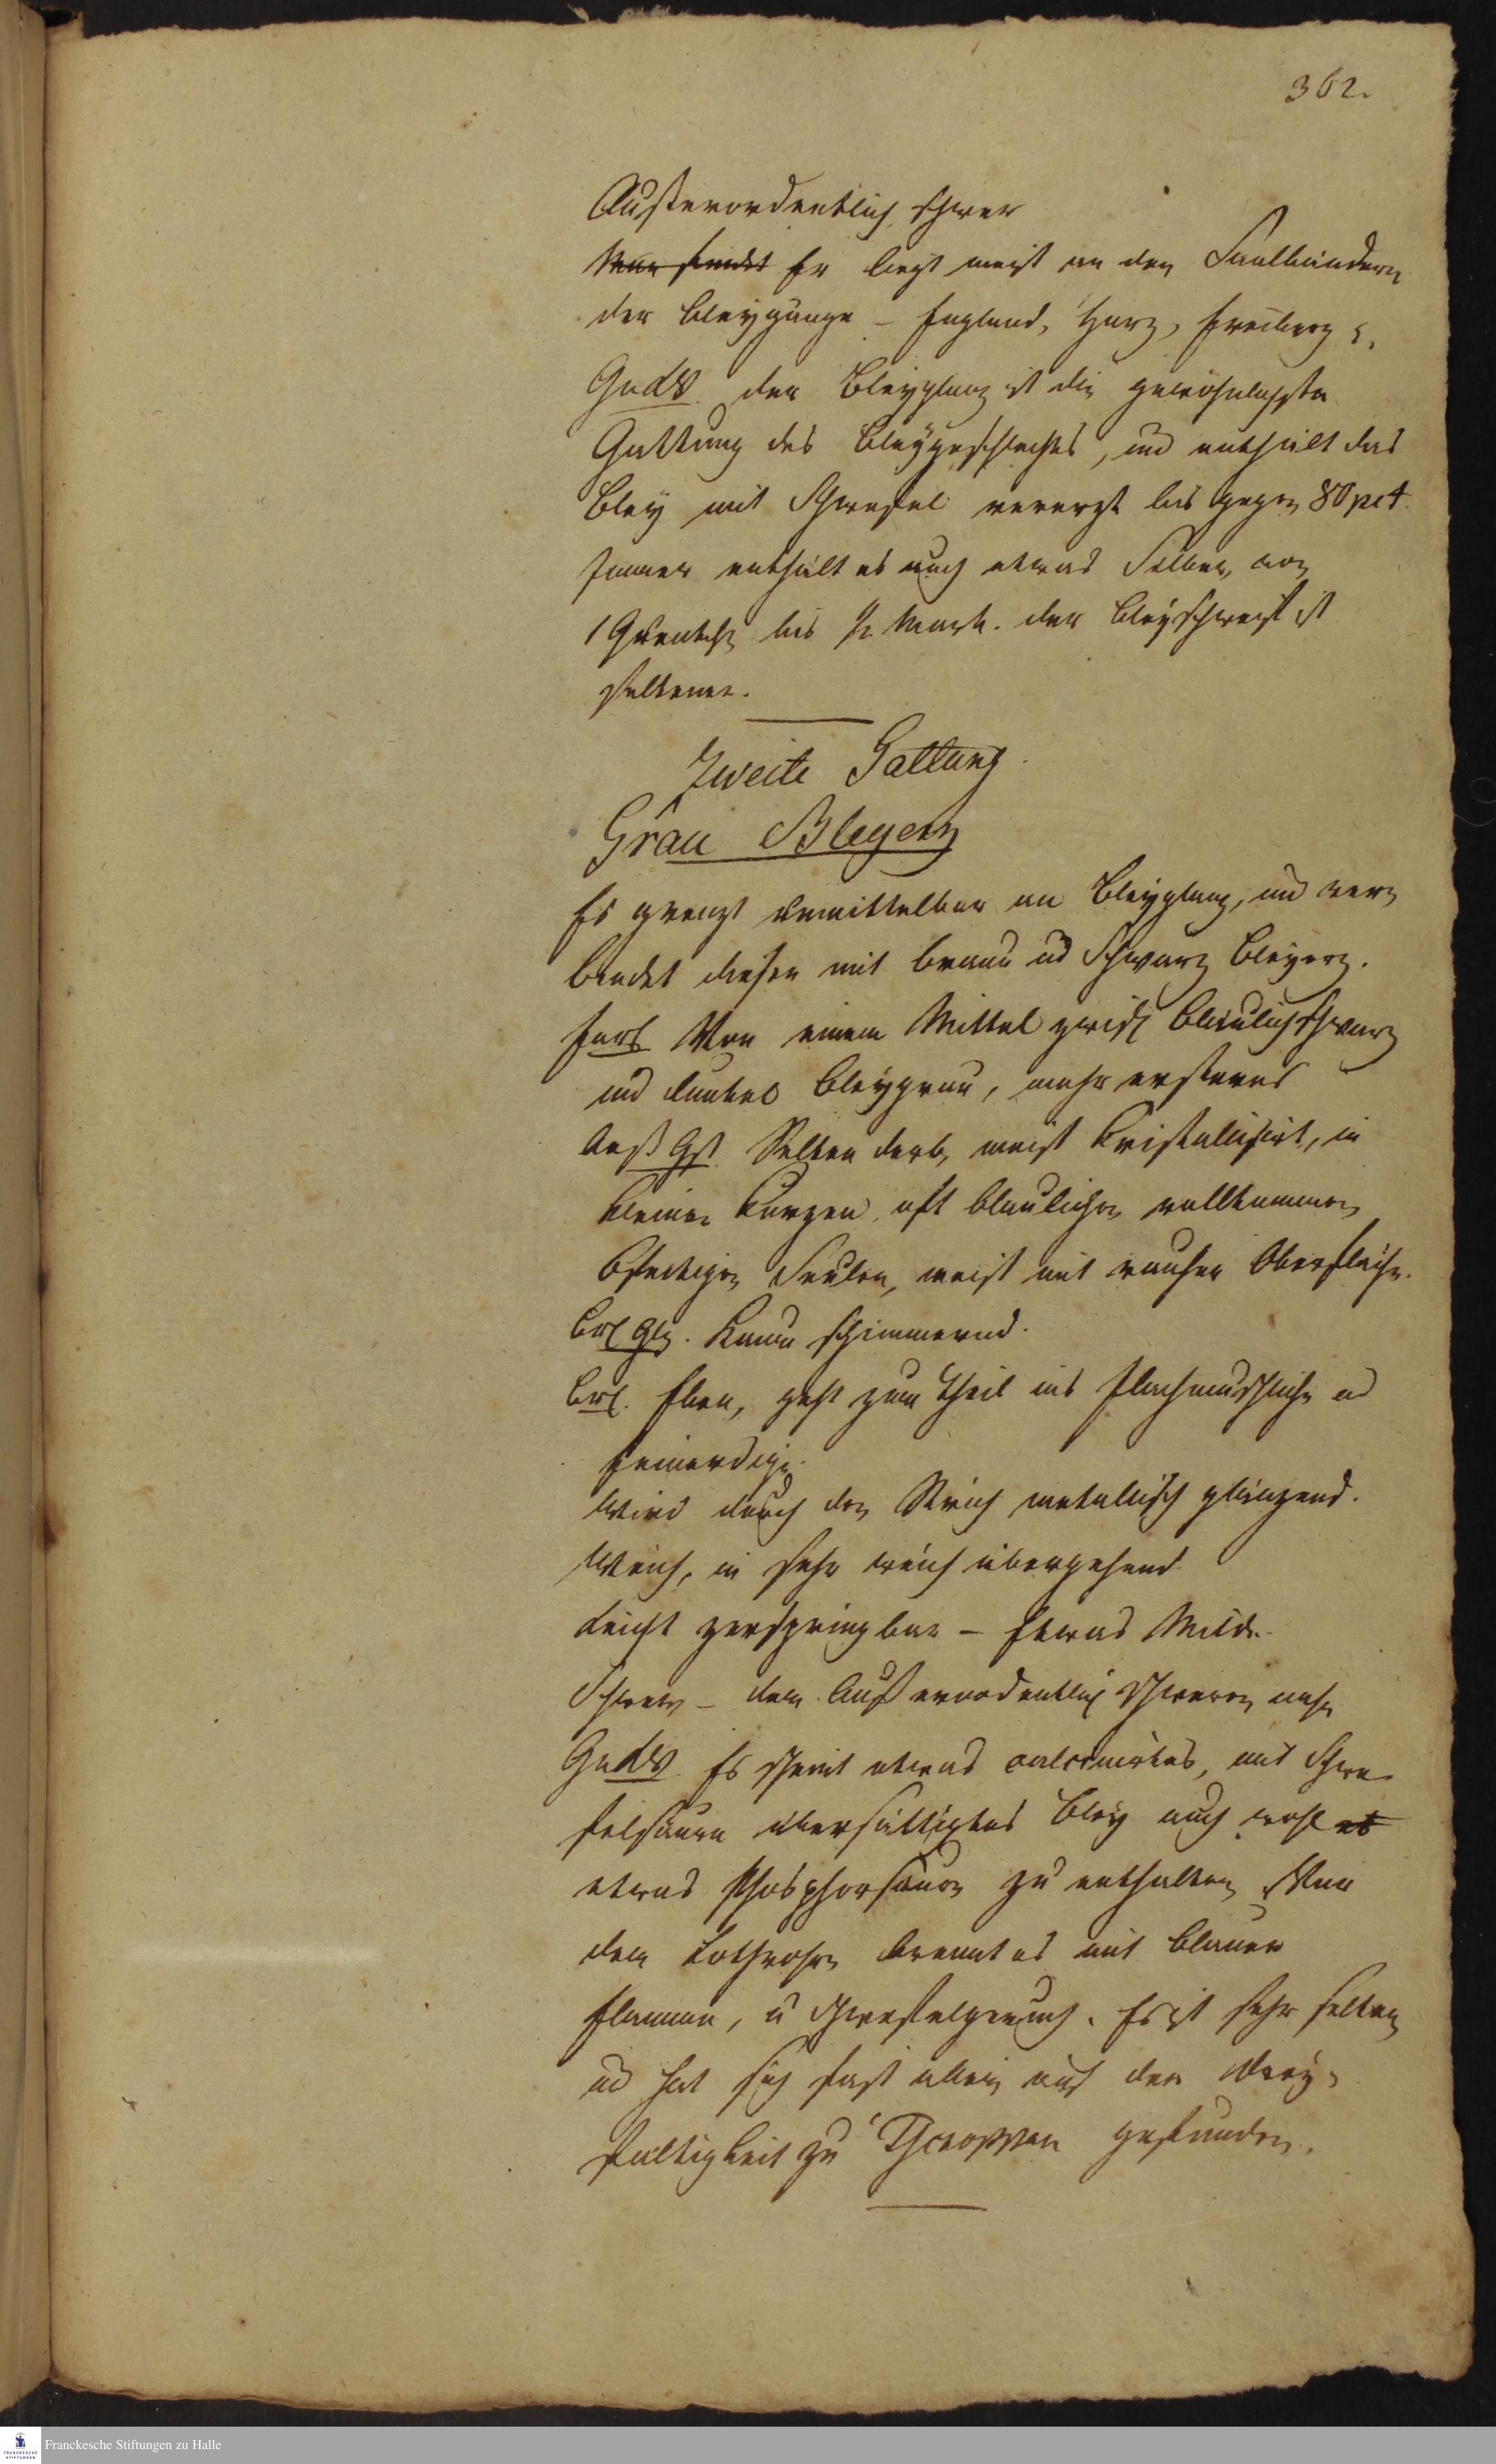 362.
Außerordentlich schwer
Man findet Er liegt meist an den Saalbändern
der Bleygänge – England, Harz, Freiberg
der Bleyglanz ist die gewöhnlichste
Gattung des Bleygeschlechts, und enthält das
Bley mit Schwefel vererzt bis gegen 80 pct.
Immer enthält es auch etwas Silber, von
1 Quentch bis Mark. der Bleyschweif ist
seltener.
Zweite Gattung.
Grau Bleyerz
Es grenzt unmittelbar an Bleyglanz, und ver
bindet diesen mit braun und Schwarz Bleyerz.
Farb Von einem Mittel zwisch Blaulichschwarz
und dunkel Bleygrau, mehr ersteres
Auß Gst. Selten derb, meist kristallisirt, in
kleinen kurzen oft vollkommen
6seitigen Seulen, meist mit rauher Oberfläche.
Brch Glz. Kaum schimmernd.
Brch. Eben, geht zum Theil ins flachmuschliche und
feinerdige.
Wird durch den Strich metallisch glänzend.
Weich, in sehr weich übergehend.
Leicht zerspringbar – Etwas Milde.
Schwer – dem Außerordentlich schweren nahe
Es scheint etwas calcinirtes, mit Schwe
felsäure übersättigtes Bley auch wohl et
etwas Phosphorsäure zu enthalten Vor
dem Löthrohre brennt es mit blauer
Flamme, u Schwefelgeruch. Es ist sehr selten
und hat sich fast allein auf der Drey
faltigkeit zu Tschoppau gefunden.
Franckesche Stiftungen zu Halle
FRANCKESCHE
STIFTUNGEN